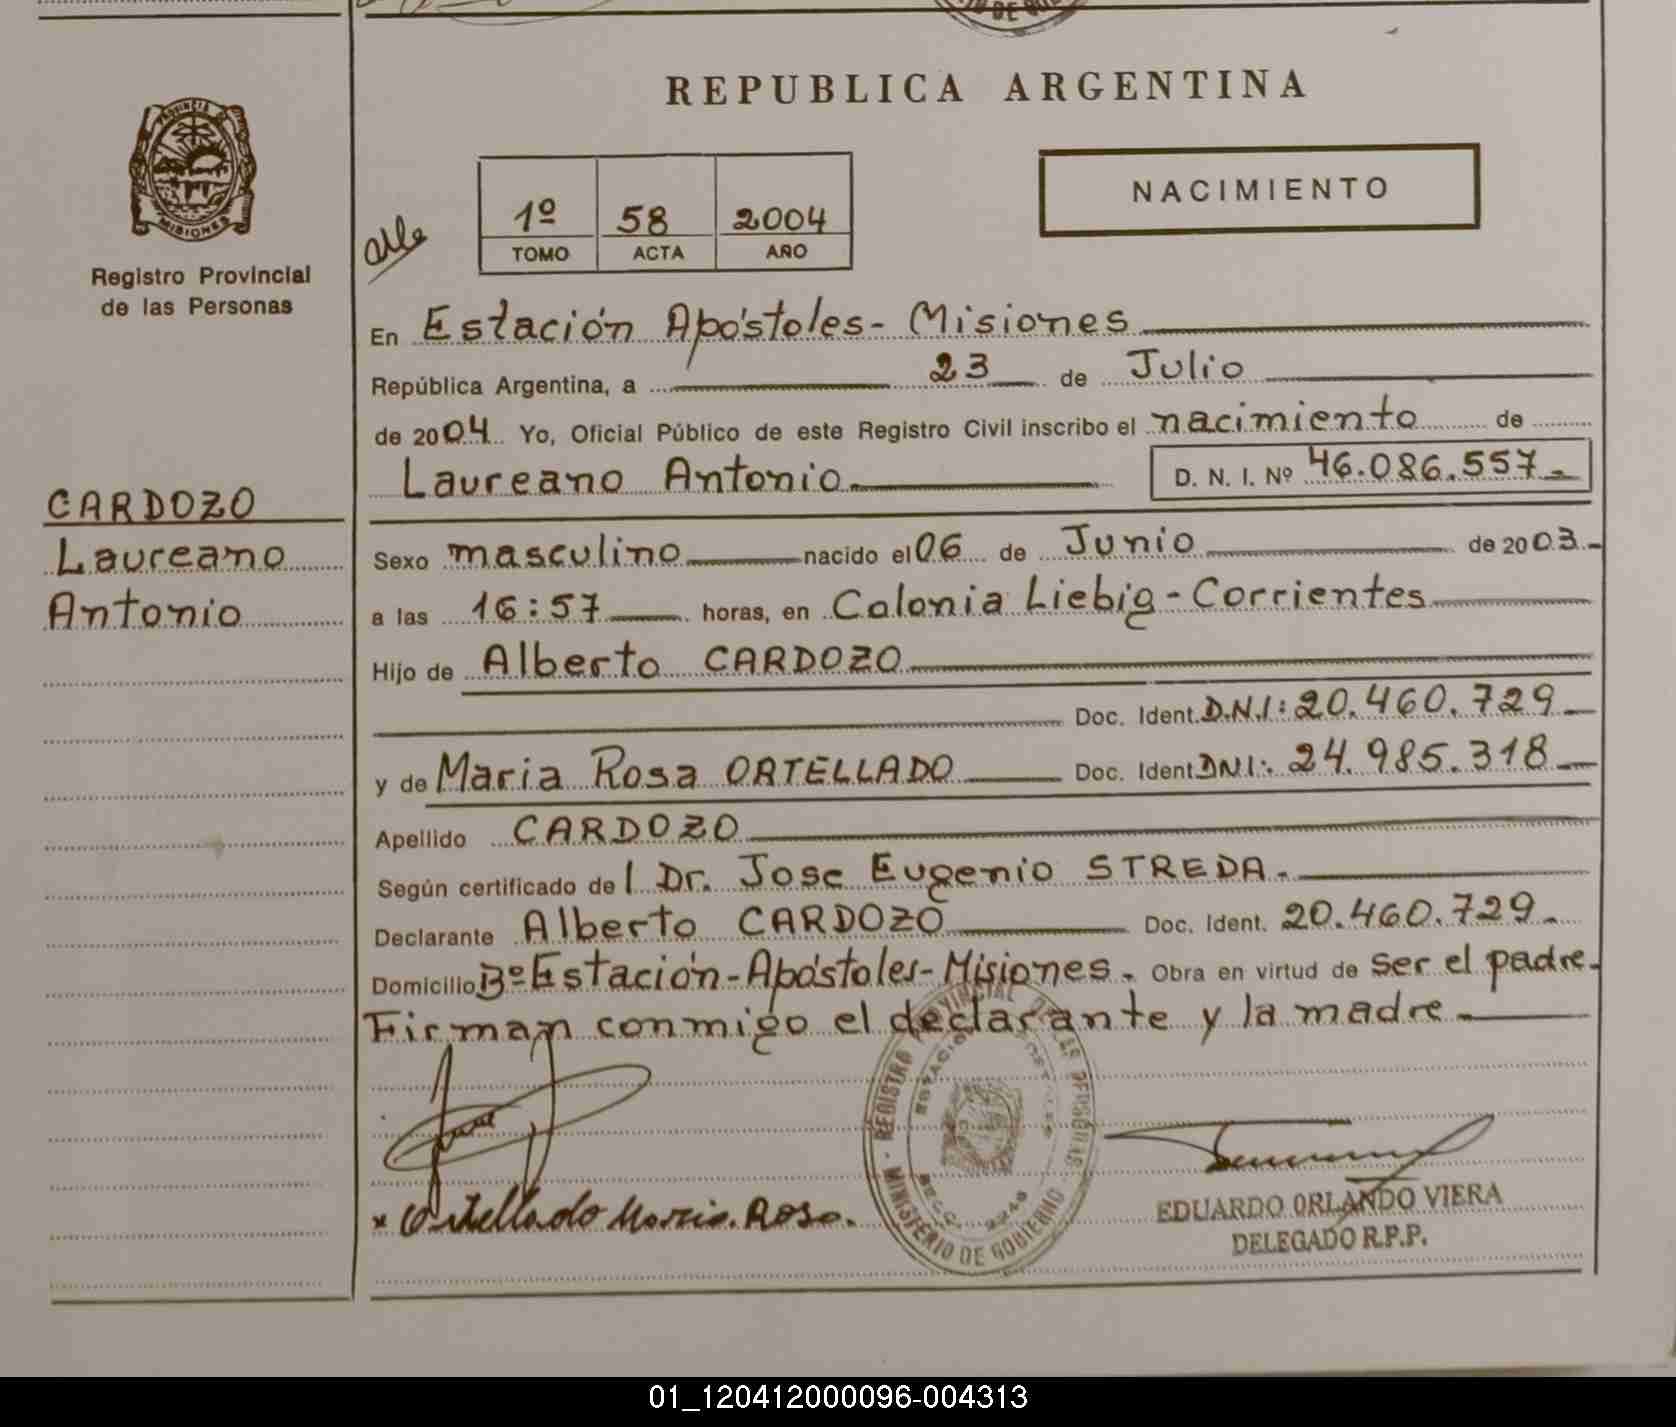 REPUBLICA ARGENTINA
PROVINCIA DE
MISIONES
Registro Provincial
de las Personas
1º 58 2004
TOMO ACTA AÑO
NACIMIENTO
En Estación Apóstoles - Misiones
República Argentina, a 23 de Julio
de 2004 Yo, Oficial Público de este Registro Civil inscribo el nacimiento de
Laureano Antonio D. N. I. Nº 46.086.557.-
CARDOZO
Laureano
Antonio
Sexo masculino nacido el 06 de Junio de 2003.-
a las 16:57 horas, en Colonia Liebig - Corrientes
Hijo de Alberto CARDOZO
Doc. Ident. D.N.I: 20.460.729
y de Maria Rosa ORTELLADO Doc. Ident. DNI: 24.985.318
Apellido CARDOZO
Según certificado del Dr. Jose Eugenio STREDA.
Declarante Alberto CARDOZO Doc. Ident. 20.460.729.
Domicilio Bº Estación - Apóstoles - Misiones. Obra en virtud de ser el padre.
Firman conmigo el declarante y la madre
REGISTRO PROVINCIAL DE LAS PERSONAS
MINISTERIO DE GOBIERNO
x Ortellado Maria. Rosa.
EDUARDO ORLANDO VIERA
DELEGADO R.P.P.
01_120412000096-004313